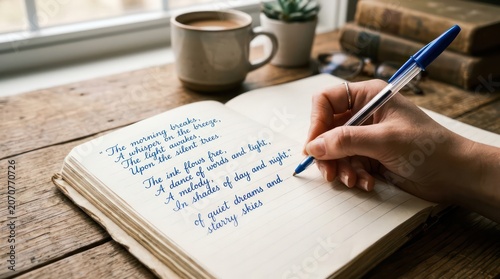 "The morning breaks,
A whisper on the breeze,
The light awakes
Upon the silent trees.
The ink flows free,
A dance of words and light,
A melody,
In shades of day and night."
of quiet dreams and
starry skies
Adobe Stock | #2070770726